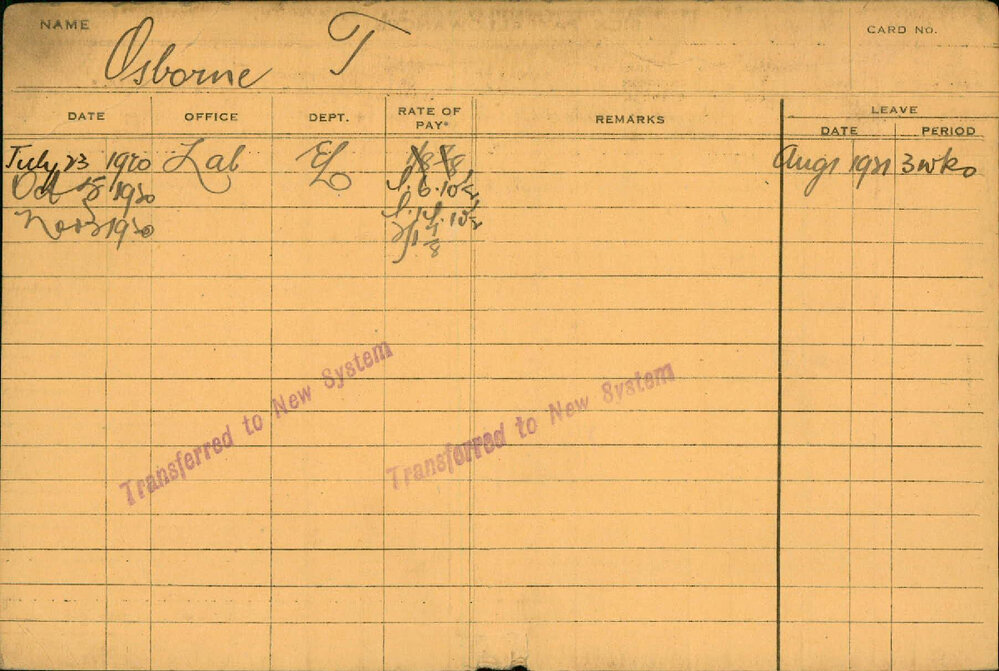 NAME
Osborne T
CARD No.
DATE OFFICE DEPT. RATE OF PAY REMARKS LEAVE
DATE PERIOD
July 23 1920 Lab EL Aug 1 1921 3 wks
Oct 1920 1.6.10½
Nov 1920 1.14.10½
2/1 7/8
Transferred to New System
Transferred to New System